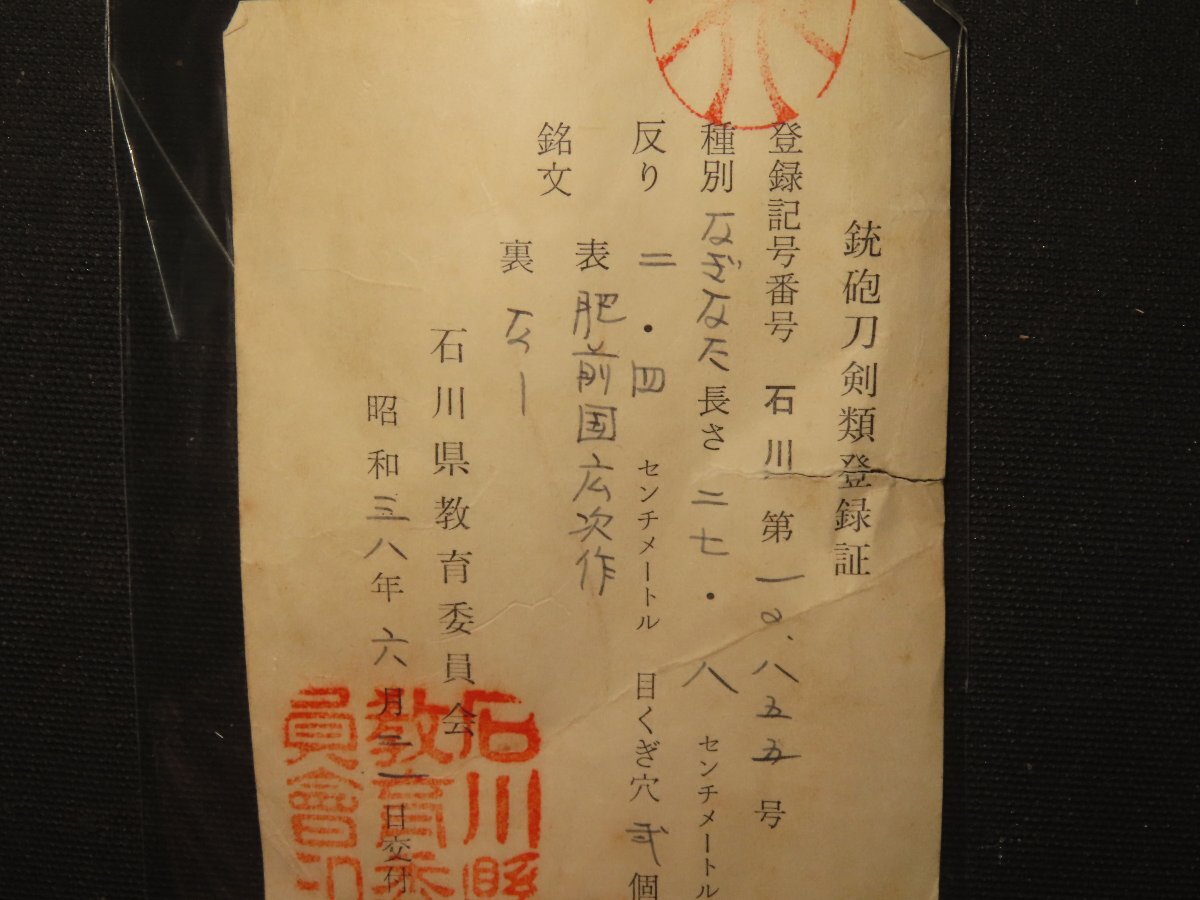 銃砲刀剣類登録証
登録記号番号 石川 第一〇、八五五号
種別 なぎなた 長さ 二七・八 センチメートル
反り 二・四 センチメートル 目くぎ穴 弐個
銘文 表 肥前国広次作
裏 なし
石川県教育委員会
昭和三八年六月二一日交付
石川縣
教育委
員會印